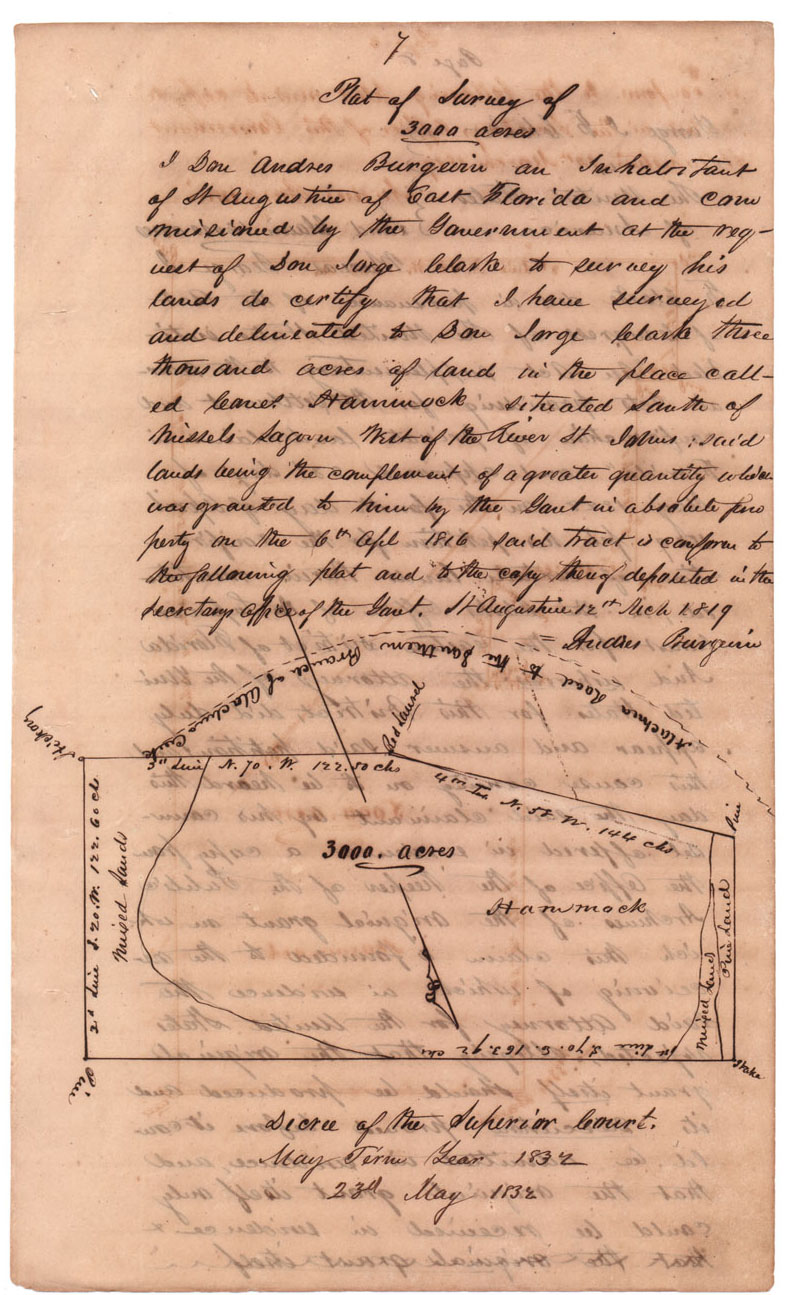 7
Plat of Survey of
3000 acres
I Don Andres Burgevin an Inhabitant
of St Augustine of East Florida and com
missioned by the Government at the req-
uest of Don Jorge Clarke to survey his
lands do certify that I have surveyed
and delineated to Don Jorge Clarke three
thousand acres of land in the place call-
ed Lanes Hammock situated South of
Missels Lagoon West of the River St Johns; said
lands being the complement of a greater quantity which
was granted to him by the Govt in absolute pro
perty on the 6th Apl 1816 said tract is conform to
the following plat and to the copy therof deposited in the
Secretarys office of the Govt. St Augustine 12th Mch 1819
= Andres Burgevin
Alachua Road to the Southern Branch of Alachua Creek
Hickory
Red Laurel
3d Line N. 70. W. 122.50 chs
4th Li N. 52 W. 144 chs
Pine
2d Line S. 20. W. 122.60 ch
Mixed Lands
3000. acres
Hammock
Mixed Lands
Pine Land
1st Line S. 70. E. 163.92 chs
Pine
Stake
Decree of the Superior Court.
May Term Year 1832
23d May 1832